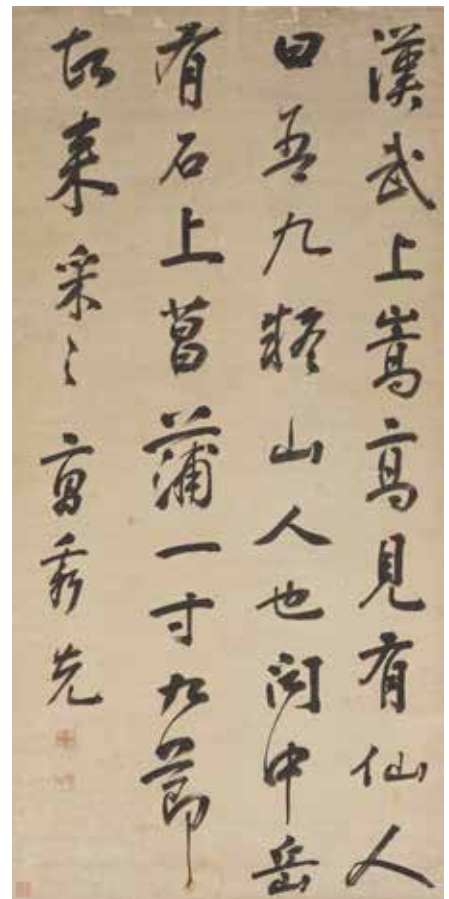 漢武上嵩高見有仙人
曰吾九疑山人也聞中岳
有石上菖蒲一寸九節
故来采之 曹秀先